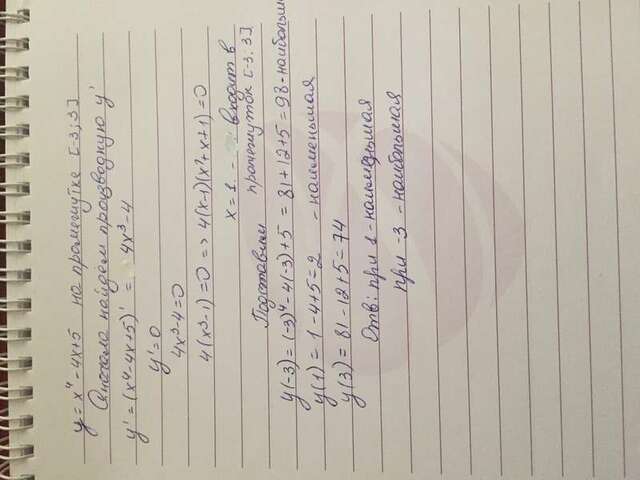 y = x⁴ - 4x + 5 на промежутке [-3; 3]
Сначала найдем производную y'
y' = (x⁴ - 4x + 5)' = 4x³ - 4
y' = 0
4x³ - 4 = 0
4(x³ - 1) = 0 => 4(x-1)(x²+x+1) = 0
x = 1. - входит в
промежуток [-3; 3]
Подставим
y(-3) = (-3)⁴ - 4(-3) + 5 = 81 + 12 + 5 = 98 - наибольш
y(1) = 1 - 4 + 5 = 2 - наименьшая
y(3) = 81 - 12 + 5 = 74
Отв: при 1 - наименьшая
при -3 - наибольшая